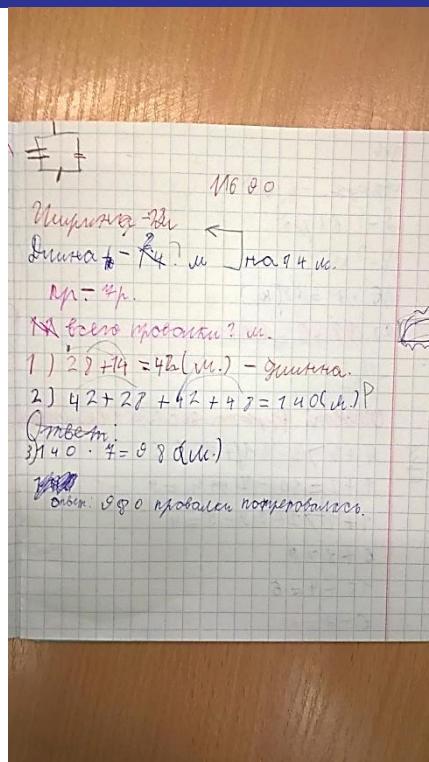 №690
Ширина - 28м
Длина - ? м на 14 м.
пр = 7р.
всего провалки ? м.
1) 28+14=42(м.) - длинна.
2) 42+28+42+48=140(м.) P
Ответ:
3) 140 · 7=980(м.)
Ответ: 980 провалки потреповалась.